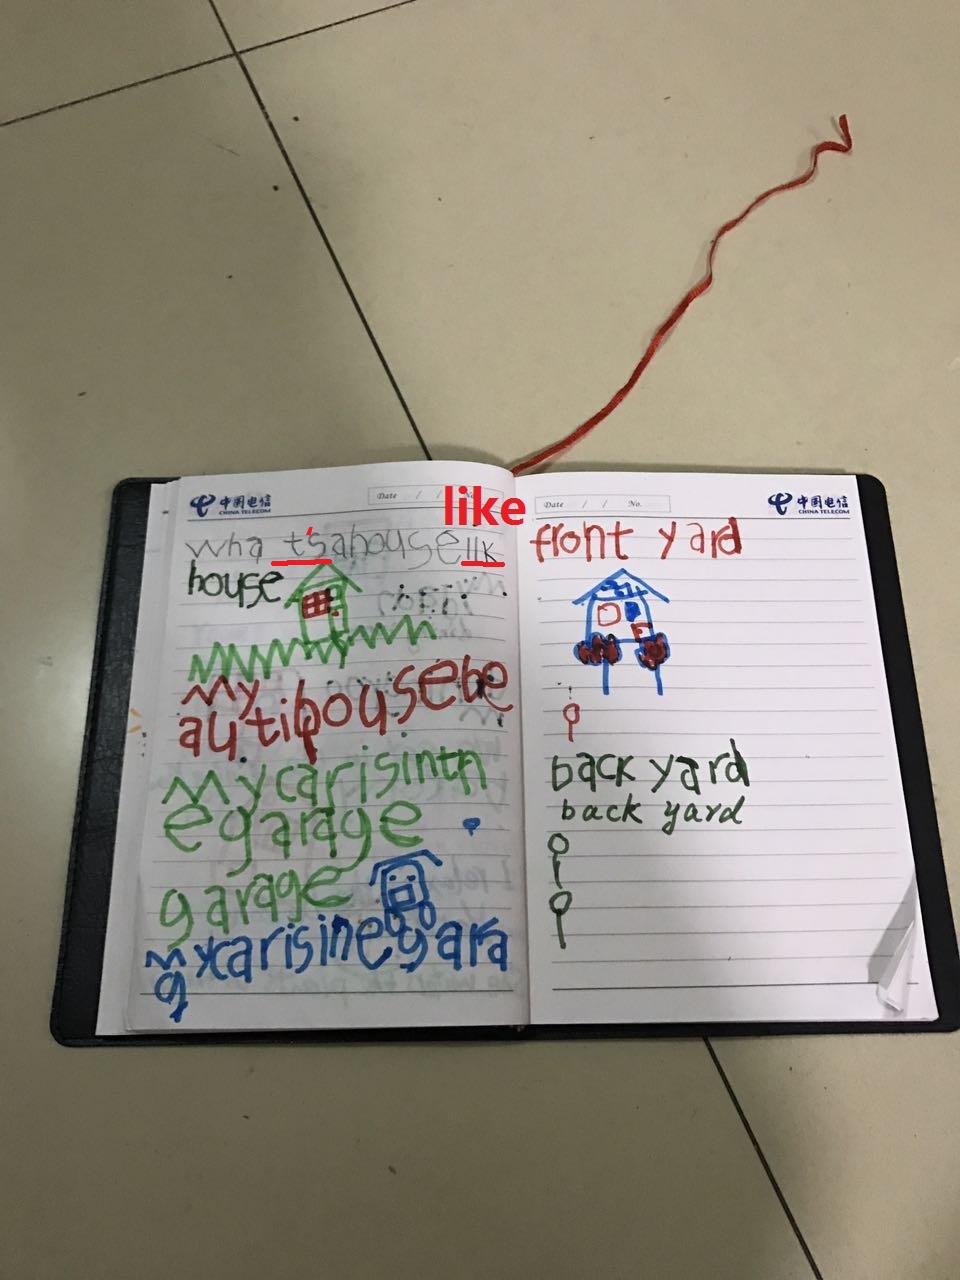 中国电信
CHINA TELECOM
Date / / No.
like
wha t'sahousellk
house
my
autihousebe
mycarisintn
egarage
garage
mycarisinegara
g
Date / / No.
中国电信
CHINA TELECOM
front yard
back yard
back yard